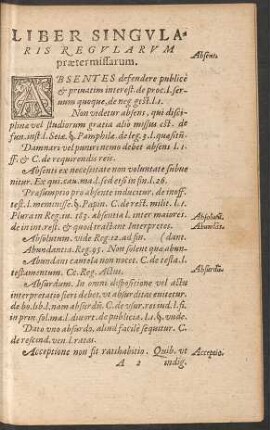 LIBER SINGVLA-
RIS REGVLARVM
prætermissarum.
Absens.
ABSENTES defendere publicè
& priuatim interest. de proc. l. ser-
uum quoque. de neg. gest. l. 1.
Non videtur absens, qui disci-
plinæ vel studiorum gratia aliò missus est. de
fun. inst. l. Seiæ. §. Pamphila. de leg. 3. l. quæsitū.
Damnari vel puniri nemo debet absens l. 1.
ff. & C. de requirendis reis.
Absenti ex necessitate non voluntate subue-
nitur. Ex qui. cau. ma. l. sed etsi in fin. l. 26.
Præsumptio pro absente inducitur, de inoff.
test. l. meminisse. §. Papin. C. de restit. milit. l. 1.
Plura in Reg. in 165. absentia l. inter maiores.
de in int. rest. & quod tractent Interpretes.
Absolutum. vide Reg. 12. ad fin.
Absolutū.
Abundantia. Reg. 95. Non solent quæ abun-
Abundās.
Abundans cautela non nocet. C. de testa. l.
testamentum. Cc. Reg. Actus.
Absurdū.
Absurdum. In omni dispositione vel actu
interpretatio fieri debet, vt absurditas euitetur.
de bo. lib. l. nam absurdū. C. de
in prin. sol. ma. l. diuort. de publicia. l. si. §. vnde.
Dato vno absurdo, aliud facilè sequitur. C.
de rescind. ven. l. ratas.
Acceptione non fit ratihabitio. Quib. vt
Acceptio.
A 2 indig.